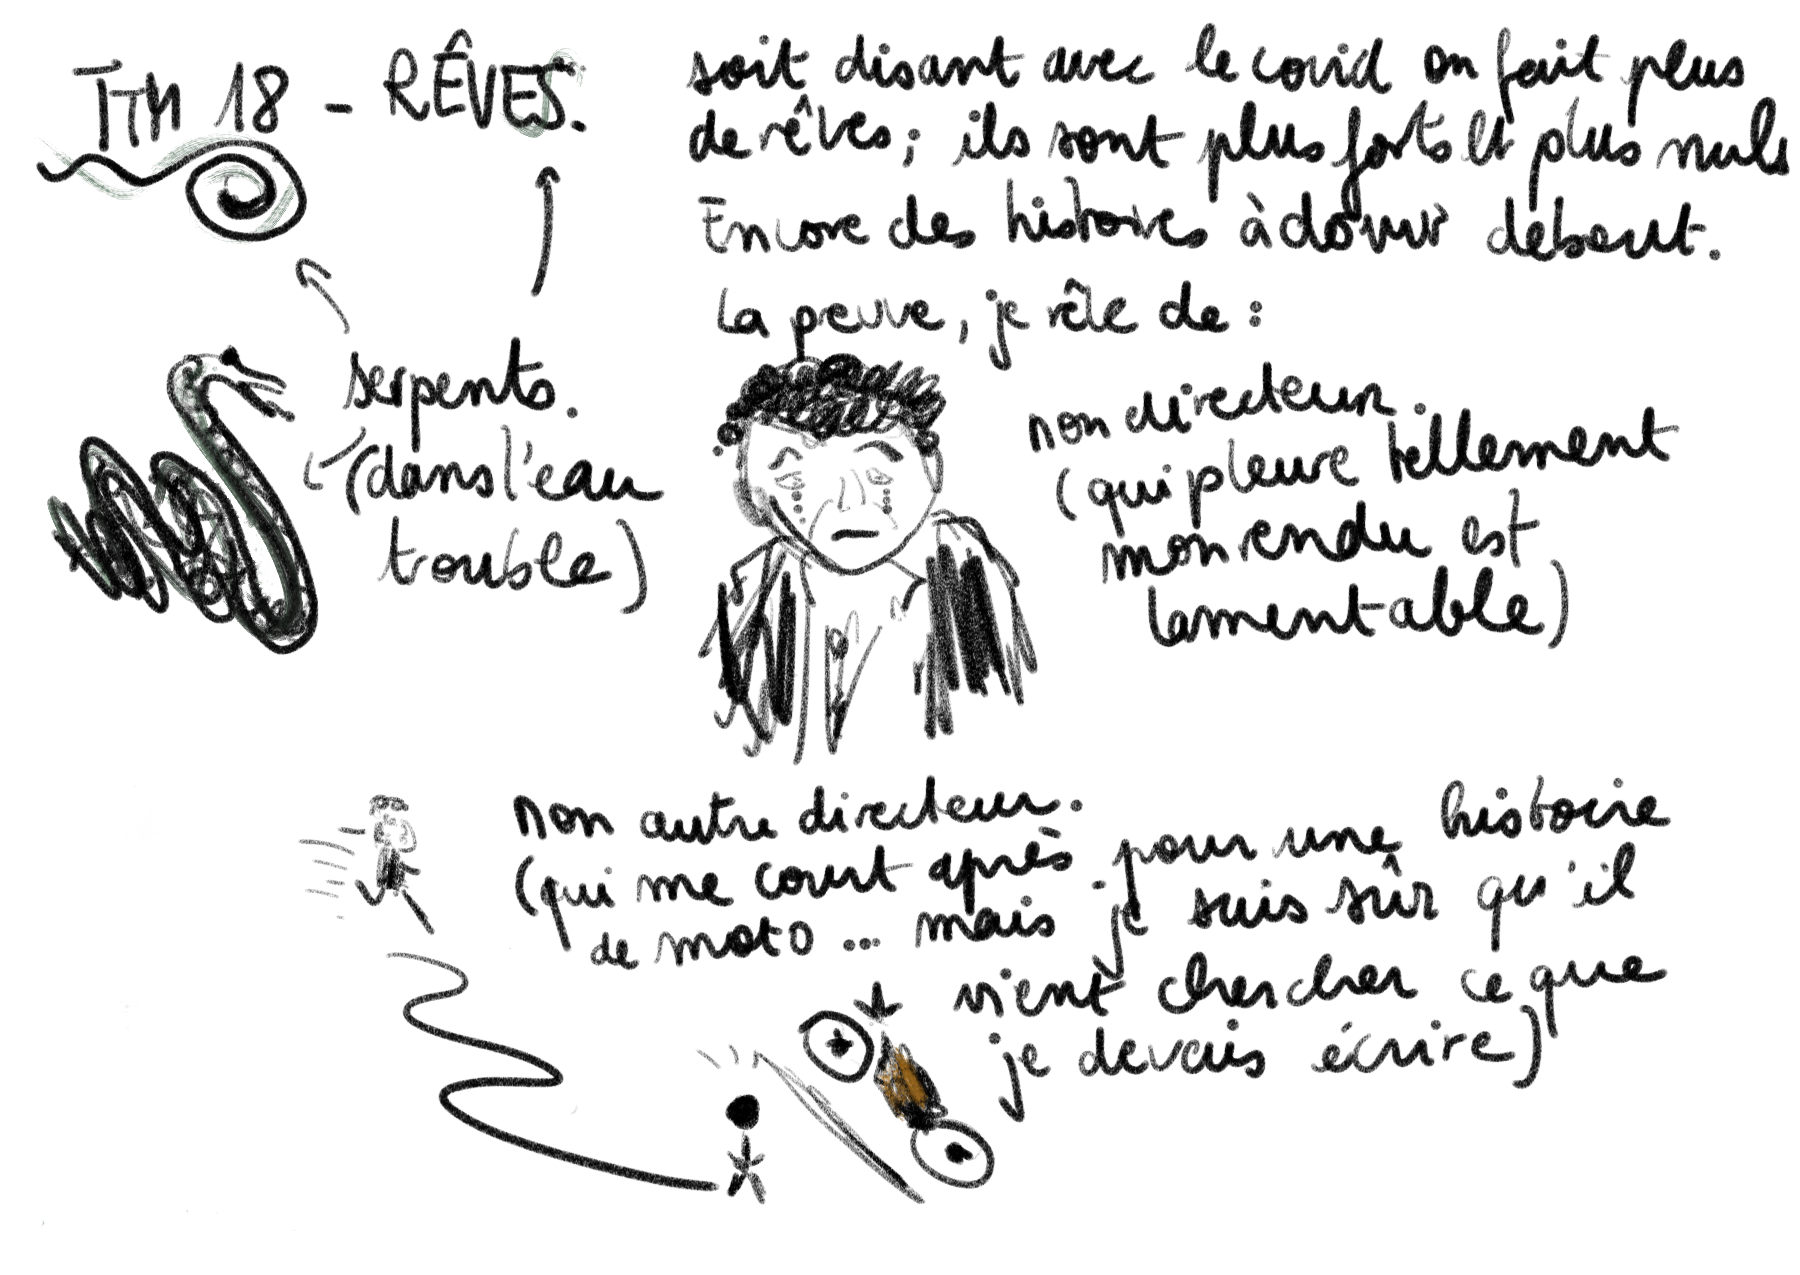 TTM 18 - RÊVES.
soit disant avec le covid on fait plus
de rêves; ils sont plus forts et plus nuls
Encore des histoires à dormir debout.
La peuve, je rêve de :
serpents.
(dans l'eau
trouble)
mon directeur.
(qui pleure tellement
mon rendu est
lamentable)
mon autre directeur.
(qui me court après. pour une histoire
de moto ... mais je suis sûr qu'il
vient chercher ce que
je devais écrire)